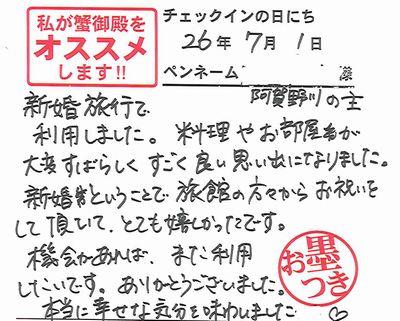 私が蟹御殿を
オススメ
します!!
チェックインの日にち
26年 7月 1日
ペンネーム
阿賀野川の主 様
新婚旅行で
利用しました。料理やお部屋等が
大変すばらしく すごく良い思い出になりました。
新婚ということで旅館の方々からお祝いを
して頂いて、とても嬉しかったです。
機会があれば、また利用
したいです。ありがとうございました。
本当に幸せな気分を味わいました ♡
お墨つき